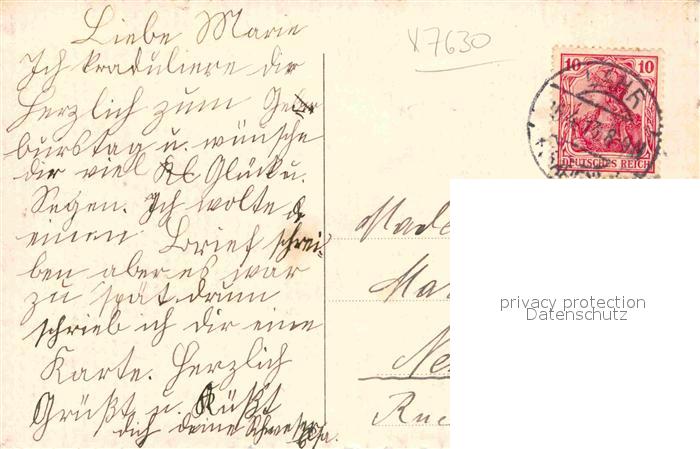 Liebe Marie
Ich kraduliere dir
herzlich zum Ge-
burstag u. wünsche
dir viel Glück u.
Segen. Ich wolte
einen Brief schrei-
ben aber es war
zu spät. drum
schrieb ich dir eine
Karte. Herzlich
Grüßt u. Küßt
dich deine Schwester
X7630
10 10
DEUTSCHES REICH
Made
Ma
Ne
Rue
privacy protection
Datenschutz